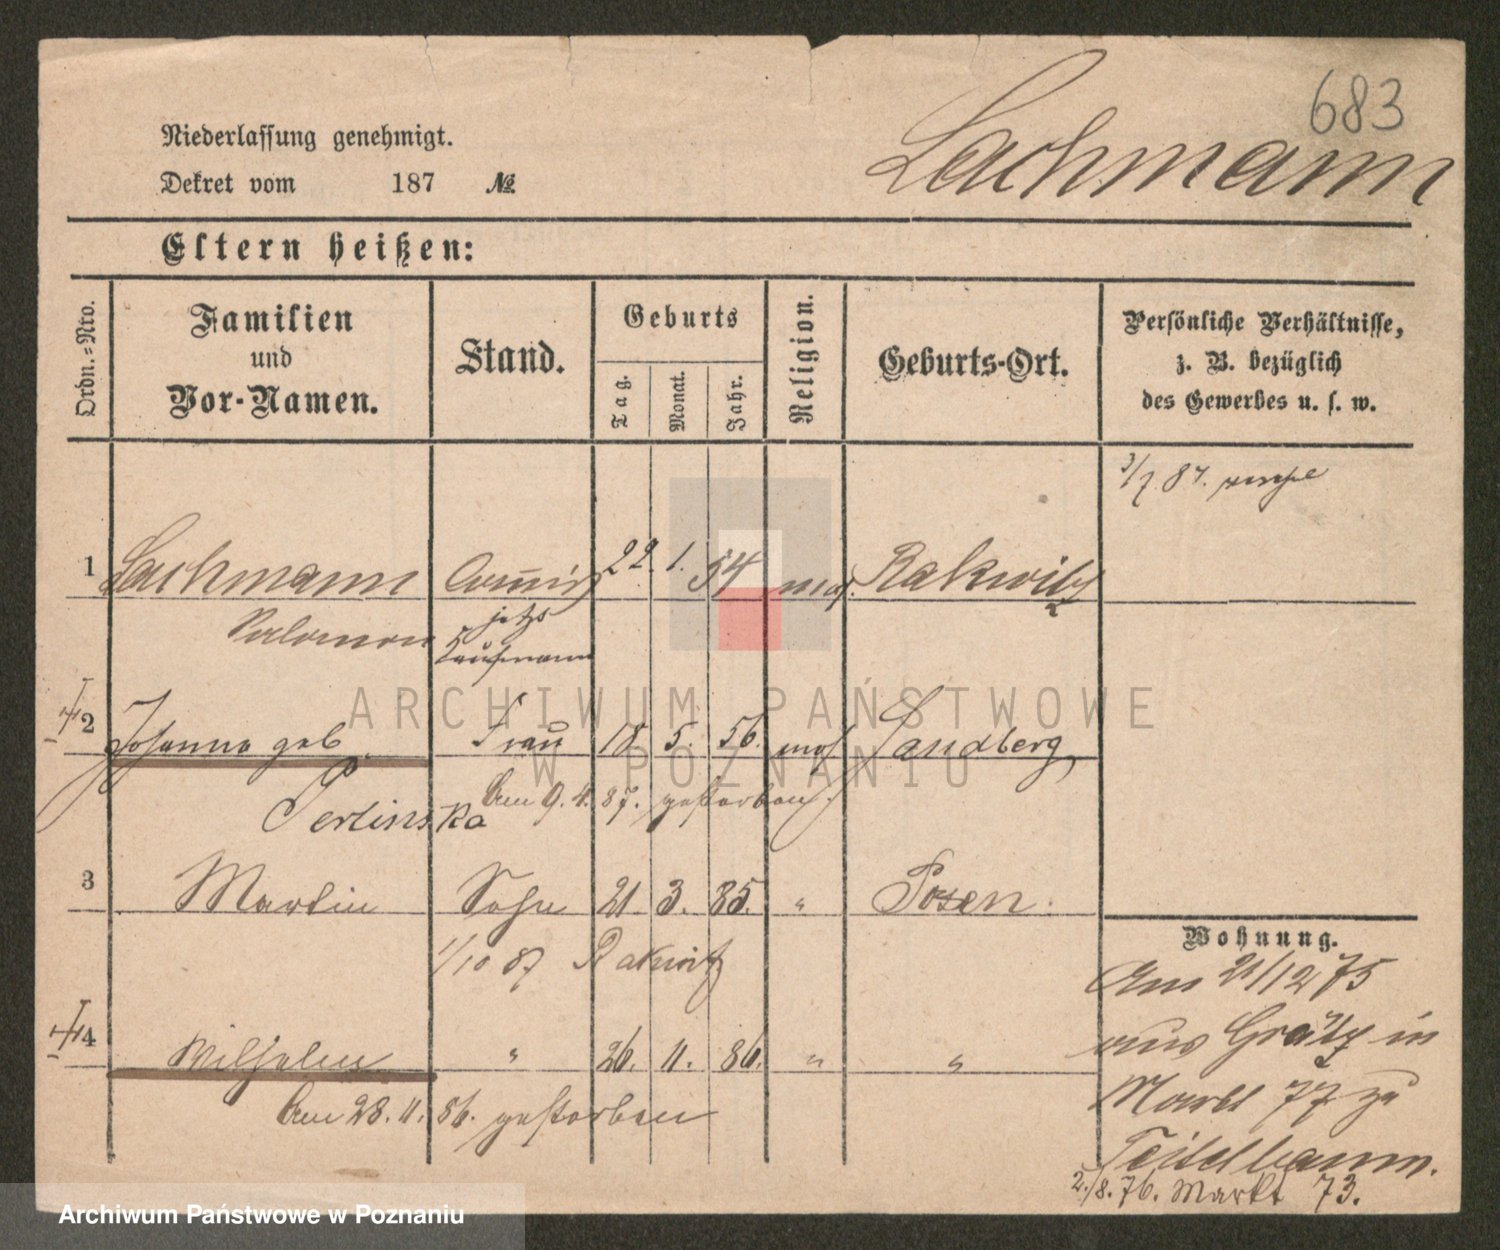 683
Lachmann
Niederlassung genehmigt.
Dekret vom 187 №
Eltern heißen:
Ordn.=Nro.
Familien und Vor-Namen.
Stand.
Geburts
Tag.
Monat.
Jahr.
Religion.
Geburts-Ort.
Persönliche Verhältnisse,
z. B. bezüglich
des Gewerbes u. s. w.
3/7. 87.
1 Lachmann Commis 22. 1. 54 mos. Rakwitz
Salomon jetzt
Kaufmann
2 Johanna geb Frau 18. 5. 56. mos Sandberg
Perlinska Am 9. 4. 87. gestorben.
3 Martin Sohn 21. 3. 85. " Posen.
1/10 87 Rakwitz
4 Wilhelm " 26. 11. 86. " "
Am 28. 11. 86. gestorben
Wohnung.
Am 21/12 75
aus Grätz in
Markt 77 zu
Teitelbaum.
2./8. 76. Markt 73.
ARCHIWUM PAŃSTWOWE
W POZNANIU
Archiwum Państwowe w Poznaniu